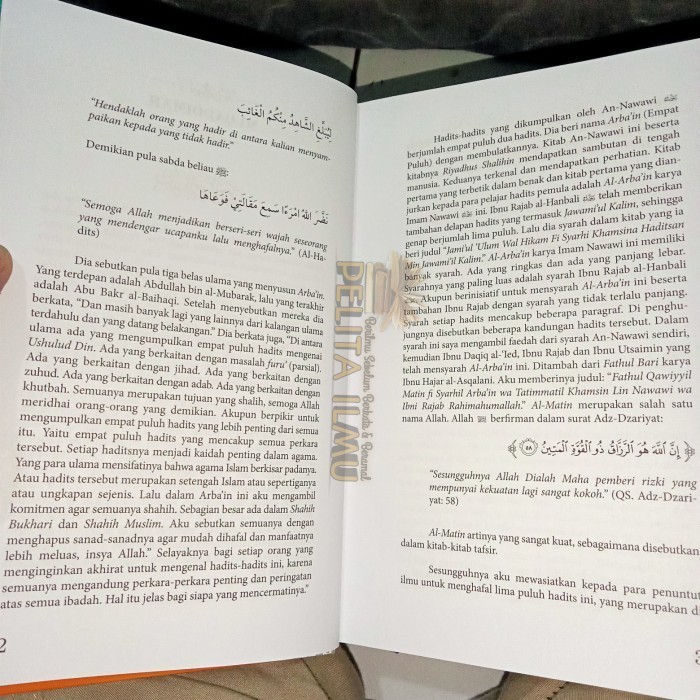 لِيُبَلِّغِ الشَّاهِدُ مِنْكُمُ الْغَائِبَ
"Hendaklah orang yang hadir di antara kalian menyam-
paikan kepada yang tidak hadir."
Demikian pula sabda beliau ﷺ:
نَضَّرَ اللهُ امْرَءًا سَمِعَ مَقَالَتِيْ فَوَعَاهَا
"Semoga Allah menjadikan berseri-seri wajah seseorang
yang mendengar ucapanku lalu menghafalnya." (Al-Ha-
dits)
Dia sebutkan pula tiga belas ulama yang menyusun Arba'in.
Yang terdepan adalah Abdullah bin al-Mubarak, lalu yang terakhir
adalah Abu Bakr al-Baihaqi. Setelah menyebutkan mereka dia
berkata, "Dan masih banyak lagi yang lainnya dari kalangan ulama
terdahulu dan yang datang belakangan." Dia berkata juga, "Di antara
ulama ada yang mengumpulkan empat puluh hadits mengenai
Ushulud Din. Ada yang berkaitan dengan masalah furu' (parsial).
Ada yang berkaitan dengan jihad. Ada yang berkaitan dengan
zuhud. Ada yang berkaitan dengan adab. Ada yang berkaitan dengan
khutbah. Semuanya merupakan tujuan yang shalih, semoga Allah
meridhai orang-orang yang demikian. Akupun berpikir untuk
mengumpulkan empat puluh hadits yang lebih penting dari semua
itu. Yaitu empat puluh hadits yang mencakup semua perkara
tersebut. Setiap haditsnya menjadi kaidah penting dalam agama.
Yang para ulama mensifatinya bahwa agama Islam berkisar padanya.
Atau hadits tersebut merupakan setengah Islam atau sepertiganya
atau ungkapan sejenis. Lalu dalam Arba'in ini aku mengambil
komitmen agar semuanya shahih. Sebagian besar ada dalam Shahih
Bukhari dan Shahih Muslim. Aku sebutkan semuanya dengan
menghapus sanad-sanadnya agar mudah dihafal dan manfaatnya
lebih meluas, insya Allah." Selayaknya bagi setiap orang yang
menginginkan akhirat untuk mengenal hadits-hadits ini, karena
semuanya mengandung perkara-perkara penting dan peringatan
atas semua ibadah. Hal itu jelas bagi siapa yang mencermatinya."
2
Hadits-hadits yang dikumpulkan oleh An-Nawawi
berjumlah empat puluh dua hadits. Dia beri nama Arba'in (Empat
Puluh) dengan membulatkannya. Kitab An-Nawawi ini beserta
kitabnya Riyadhus Shalihin mendapatkan sambutan di tengah
manusia. Keduanya terkenal dan mendapatkan perhatian. Kitab
pertama yang terbetik dalam benak dan kitab pertama yang dian-
jurkan kepada para pelajar hadits pemula adalah Al-Arba'in karya
Imam Nawawi ini. Ibnu Rajab al-Hanbali telah memberikan
tambahan delapan hadits yang termasuk Jawami'ul Kalim, sehingga
genap berjumlah lima puluh. Lalu dia syarah dalam kitab yang ia
beri judul "Jami'ul 'Ulum Wal Hikam Fi Syarhi Khamsina Haditsan
Min Jawami'il Kalim." Al-Arba'in karya Imam Nawawi ini memiliki
banyak syarah. Ada yang ringkas dan ada yang panjang lebar.
Syarahnya yang paling luas adalah syarah Ibnu Rajab al-Hanbali
Akupun berinisiatif untuk mensyarah Al-Arba'in ini beserta
tambahan Ibnu Rajab dengan syarah yang tidak terlalu panjang.
Syarah setiap hadits mencakup beberapa paragraf. Di penghu-
jungnya disebutkan beberapa kandungan hadits tersebut. Dalam
syarah ini saya mengambil faedah dari syarah An-Nawawi sendiri,
kemudian Ibnu Daqiq al-'Ied, Ibnu Rajab dan Ibnu Utsaimin yang
telah mensyarah Al-Arba'in ini. Ditambah dari Fathul Bari karya
Ibnu Hajar al-Asqalani. Aku memberinya judul: "Fathul Qawiyyil
Matin fi Syarhil Arba'in wa Tatimmatil Khamsin Lin Nawawi wa
Ibni Rajab Rahimahumallah." Al-Matin merupakan salah satu
nama Allah. Allah berfirman dalam surat Adz-Dzariyat:
﴿ إِنَّ ٱللَّهَ هُوَ ٱلرَّزَّاقُ ذُو ٱلْقُوَّةِ ٱلْمَتِينُ ٥٨ ﴾
"Sesungguhnya Allah Dialah Maha pemberi rizki yang
mempunyai kekuatan lagi sangat kokoh." (QS. Adz-Dzari-
yat: 58)
Al-Matin artinya yang sangat kuat, sebagaimana disebutkan
dalam kitab-kitab tafsir.
Sesungguhnya aku mewasiatkan kepada para penuntut
ilmu untuk menghafal lima puluh hadits ini, yang merupakan di
3
PELITA ILMU
Berilmu Sebelum Berkata & Beramal